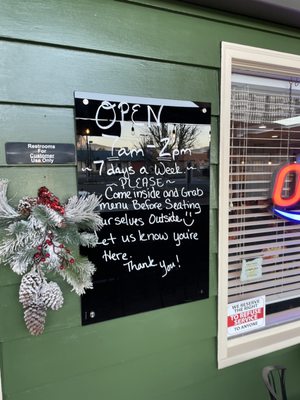 Restrooms
For
Customer
Use Only
OPEN
7am-2pm
~7 days a Week~
~PLEASE~
Come inside and Grab
menu Before Seating
ourselves Outside!
Let us know you're
Here.
Thank you!
WE RESERVE
THE RIGHT
TO REFUSE
SERVICE TO
ANYONE